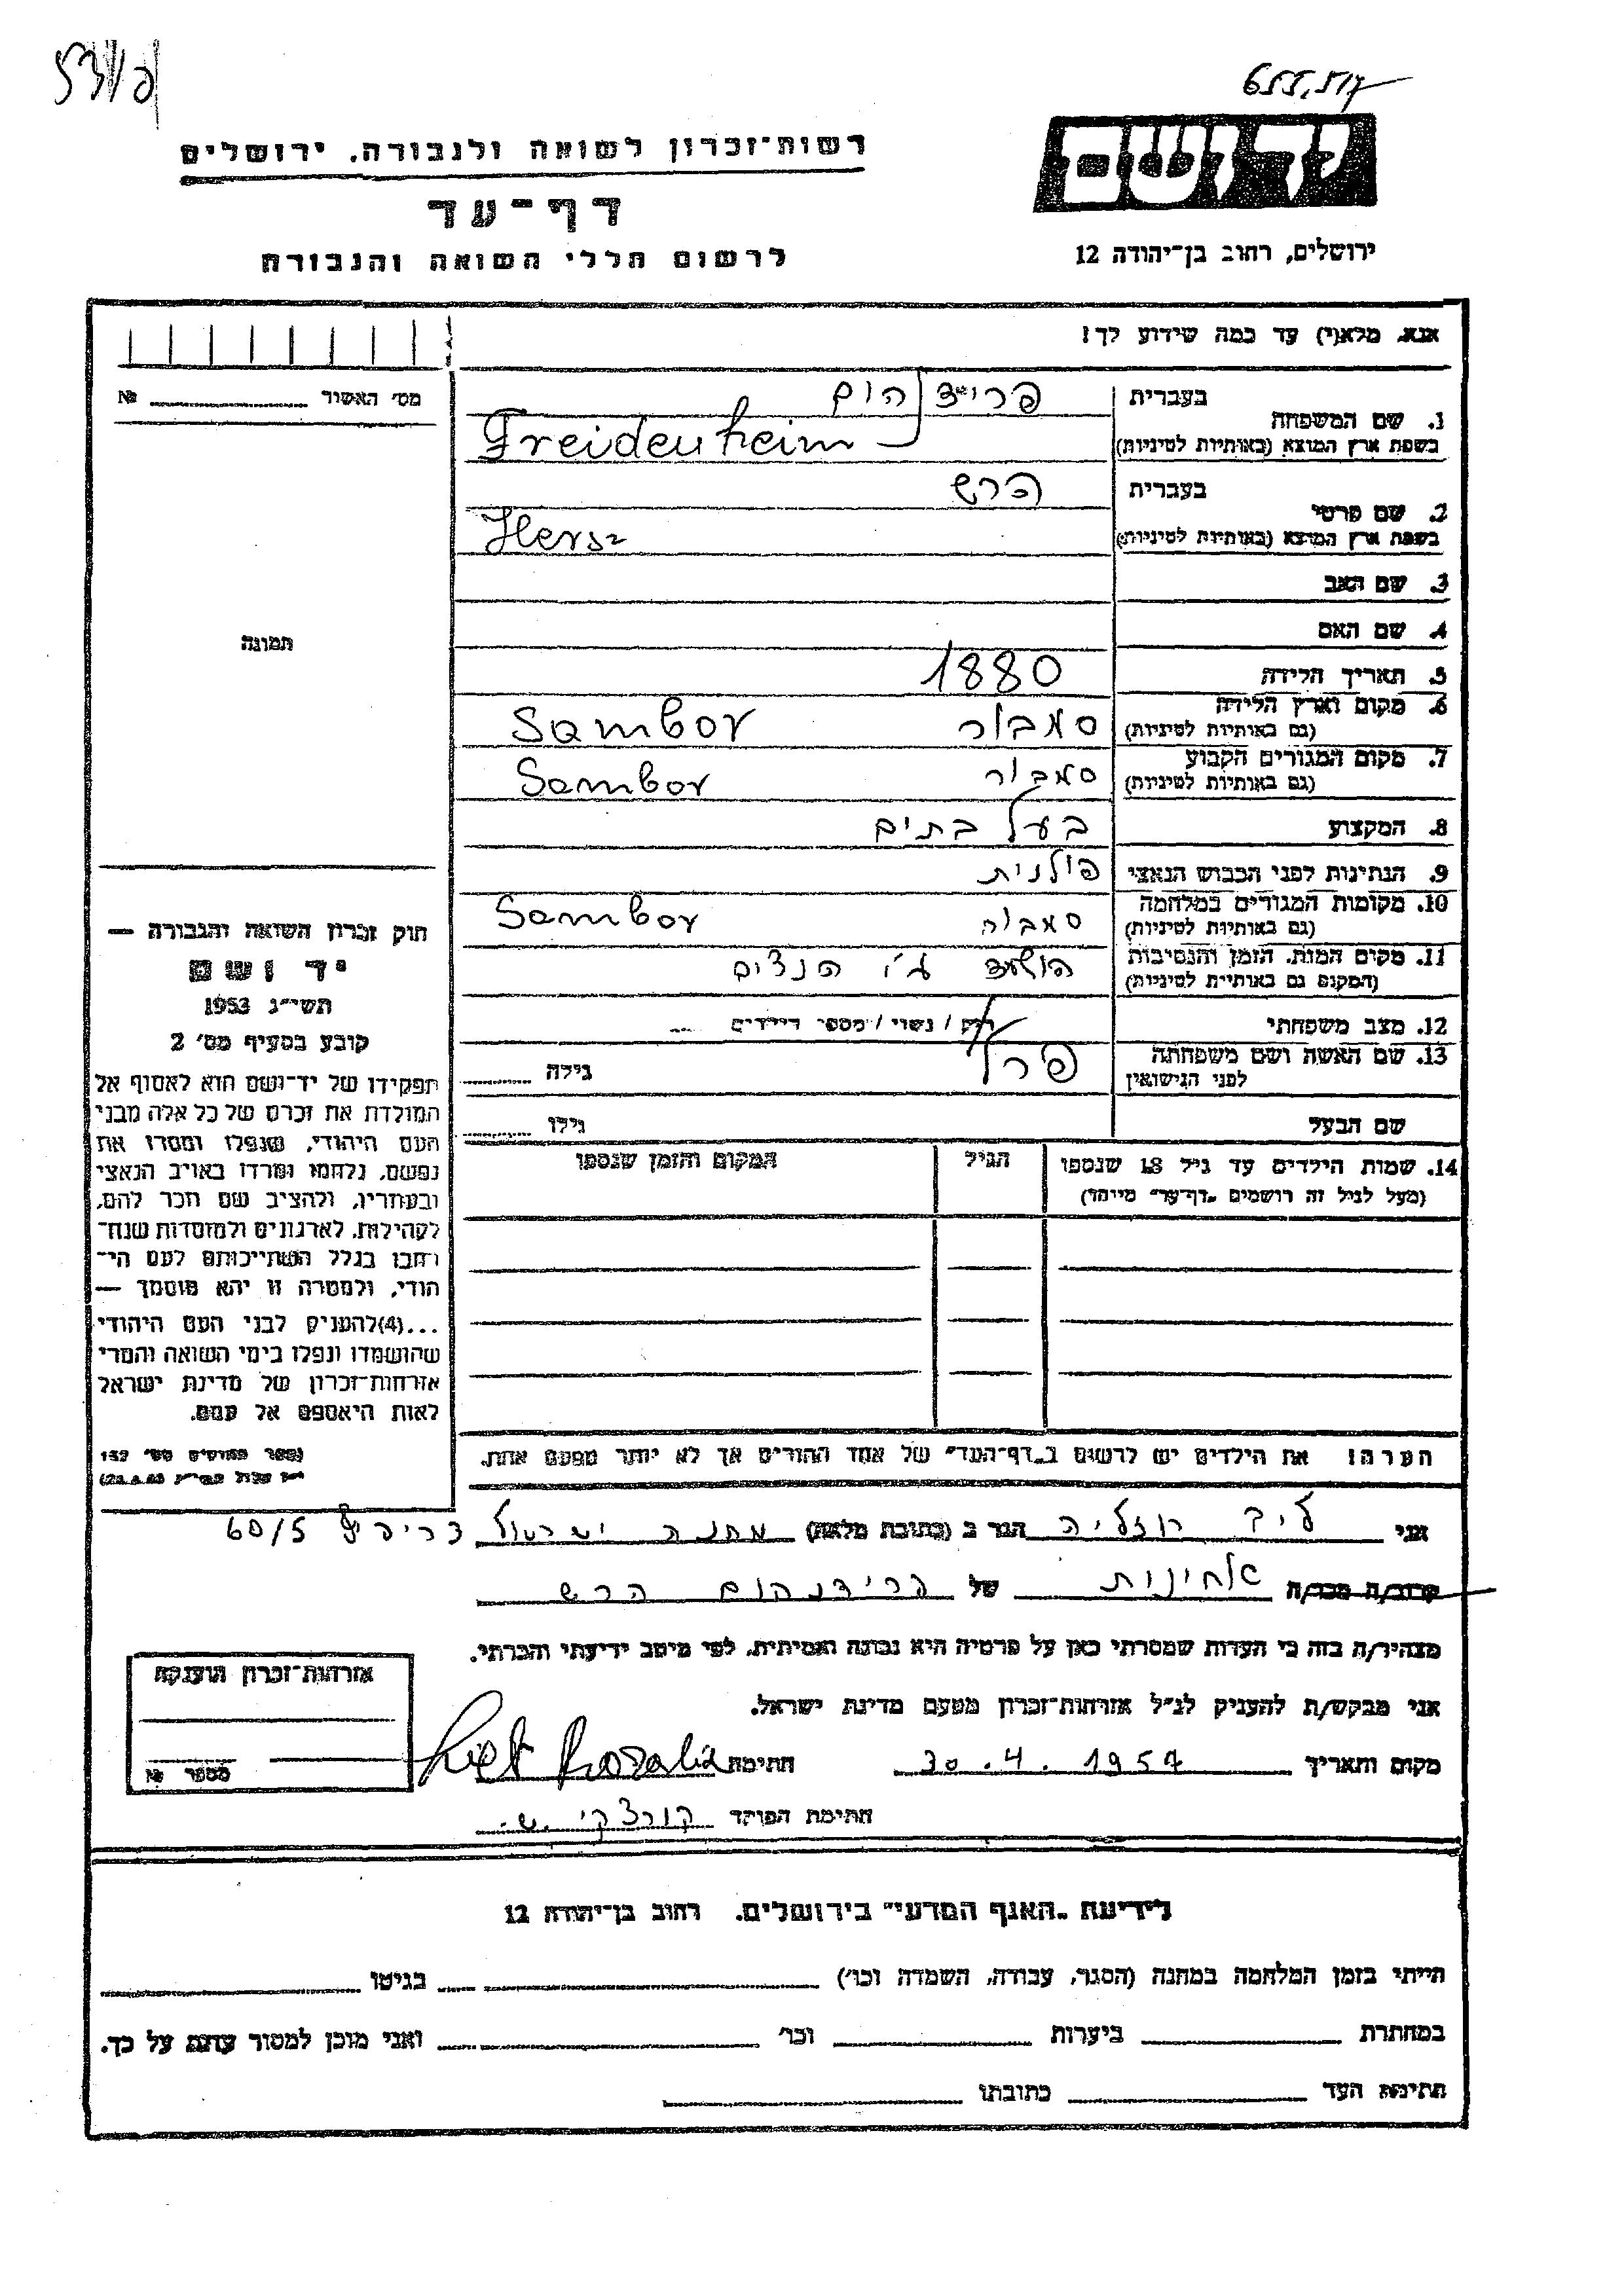 655,517
רשות־זכרון לשואה ולגבורה, ירושלים
יד ושם
דף־עד
ירושלים, רחוב בן־יהודה 12
לרשום חללי השואה והגבורה
אנא, מלא(י) עד כמה שידוע לך!
מס׳ האשור № 
1. שם המשפחה
בעברית פריידנהים
בשפת ארץ המוצא (באותיות לטיניות) Freidenheim
2. שם פרטי
בעברית הרש
בשפת ארץ המוצא (באותיות לטיניות) Hersz
3. שם האב
4. שם האם
תמונה
5. תאריך הלידה 1880
6. מקום וארץ הלידה סמבור Sambor
(גם באותיות לטיניות)
7. מקום המגורים הקבוע סמבור Sambor
(גם באותיות לטיניות)
8. המקצוע בעל בתים
9. הנתינות לפני הכבוש הנאצי פולנית
10. מקומות המגורים במלחמה סמבור Sambor
(גם באותיות לטיניות)
11. מקום המות, הזמן והנסיבות הושמד ע״י הנצים
(המקום גם באותיות לטיניות)
12. מצב משפחתי רוק / נשוי / מספר הילדים
13. שם האשה ושם משפחתה פרל גילה
לפני הנישואין
שם הבעל גילו
חוק זכרון השואה והגבורה —
יד ושם
תשי״ג 1953
קובע בסעיף מס׳ 2
תפקידו של יד־ושם הוא לאסוף אל
המולדת את זכרם של כל אלה מבני
העם היהודי, שנפלו ומסרו את
נפשם, נלחמו ומרדו באויב הנאצי
ובעוזריו, ולהציב שם וזכר להם,
לקהילות, לארגונים ולמוסדות שנח־
רחבו בגלל השתייכותם לעם הי־
הודי, ולמטרה זו יהא מוסמך —
...(4) להעניק לבני העם היהודי
שהושמדו ונפלו בימי השואה והמרי
אזרחות־זכרון של מדינת ישראל
לאות היאספם אל עמם.
(ספר החוקים מס׳ 132
14. שמות הילדים עד גיל 18 שנספו הגיל המקום והזמן שנספו
(מעל לגיל זה רושמים ״דף־עד״ מיוחד)
הערה: את הילדים יש לרשום ב״דף־העד״ של אחד ההורים אך לא יותר מפעם אחת.
אני ליב רוזליה הגר ב (כתובת מלאה) מחנה ישראל צריף 60/5
קרוב/ה מכר/ה אחינות של פרידנהים הרש
מצהיר/ה בזה כי העדות שמסרתי כאן על פרטיה היא נכונה ואמיתית, לפי מיטב ידיעתי והכרתי.
אני מבקש/ת להעניק לנ״ל אזרחות־זכרון מטעם מדינת ישראל.
מקום ותאריך 30.4.1957 חתימה Liet Rozalia
חתימת הפוקד קורצקי ש.
אזרחות־זכרון הוענקה
מספר №
לידיעת ״האגף המדעי״ בירושלים, רחוב בן־יהודה 12
הייתי בזמן המלחמה במחנה (הסגר, עבודה, השמדה וכו׳) בגיטו
במחתרת ביערות וכו׳ ואני מוכן למסור עדות על כך.
חתימת העד כתובתו